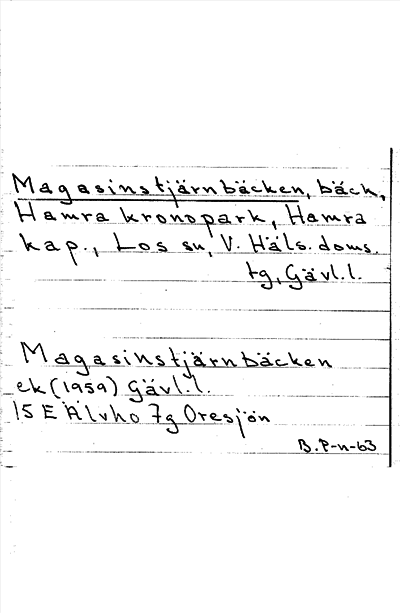 Magasinstjärnbäcken, bäck,
Hamra kronopark, Hamra
kap., Los sn, V. Häls. doms.
tg, Gävl.l.
Magasinstjärnbäcken
ek (1959) Gävl.l.
15 E Älvho 7g Oresjön
B.P-n-63